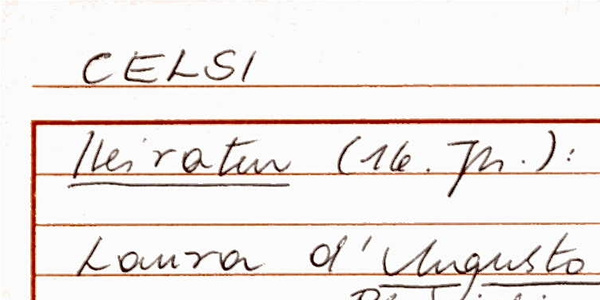 CELSI
Heiraten (16. Jh.):
Laura d'Augusto